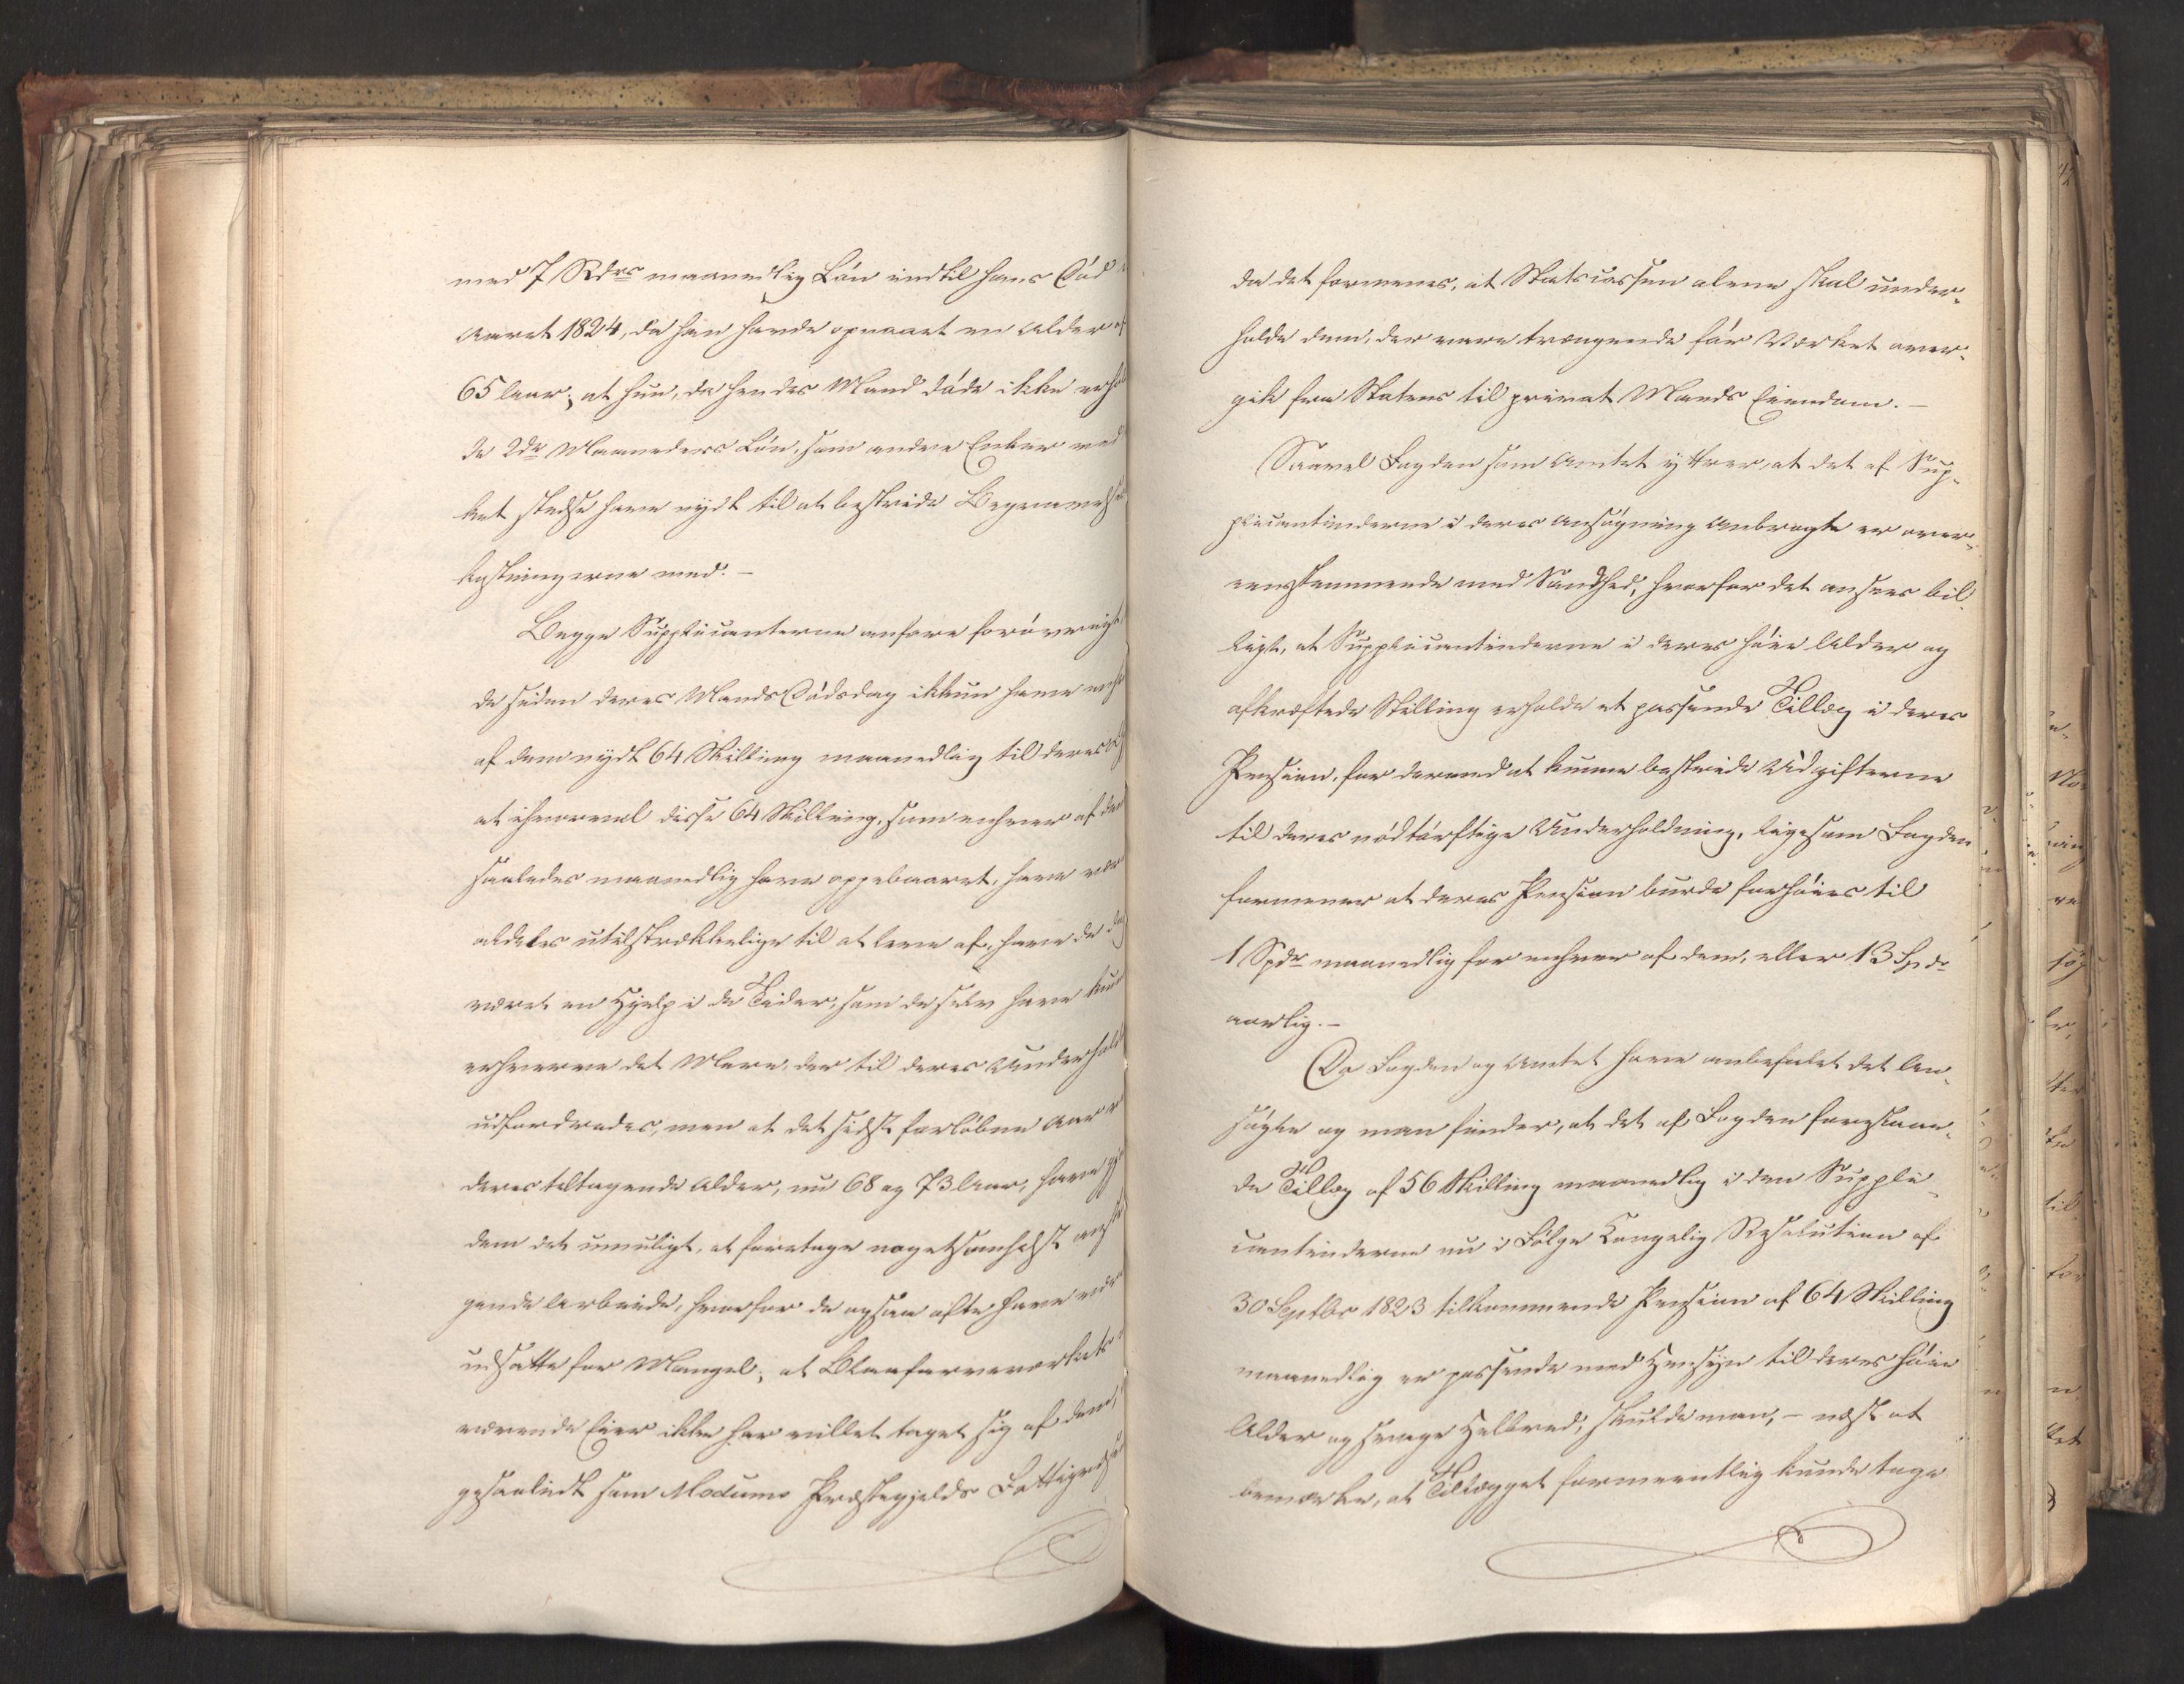 med 7 Rdrs maanedlig Løn indtil hans Død
Aaret 1824, da han havde opnaaet en Alder af
65 Aar; at hun, da hendes Mand døde ikke erhol
de 2de Maaneders Løn, som andre Enker ved
ket stedse have nydt til at bestride Begravelses
kostningerne med. —
Begge Supplicanterne anføre forøvrigt
de siden deres Mands Dødsdag ikkun have
af dem nydt 64 Skilling maanedlig til deres
at ihvorvel disse 64 Skilling, som enhver af dem
saaledes maanedlig have oppebaaret, have været
aldeles utilstrækkelige til at leve af, have de dog
været en Hjelp i de Tider, som de selv have kun
erhverve det Mere, der til deres Underhold
udfordredes, men at det sidst forløbne Aar
deres tiltagende Alder, nu 68 og 73 Aar, have
dem det umuligt, at foretage nogetsomhelst
gende Arbeide, hvorfor de ogsaa ofte have været
udsatte for Mangel; at Blaafarveværkets
værende Eier ikke har villet taget sig af dem,
gesaalidt som Modums Præstegjelds Fattigvæsen
da det formenes, at Statscassen alene skal under-
holde dem, der vare trængende før Værket over-
gik fra Statens til privat Mands Eiendom. —
Saavel Fogden som Amtet yttrer, at det af Sup-
plicantinderne i deres Ansøgning Anbragte er over-
eensstemmende med Sandhed, hvorfor det ansees bil-
ligt, at Supplicantinderne i deres høie Alder og
afkræftede Stilling erholde et passende Tillæg i deres
Pension, for dermed at kunne bestride Udgifterne
til deres nødtørftige Underholdning, ligesom Fogden
formener at deres Pension burde forhøies til
1 Spdr maanedlig for enhver af dem, eller 13 Spdr
aarlig. —
Da Fogden og Amtet have anbefalet det An-
søgte og man finder, at det af Fogden foreslaae-
de Tillæg af 56 Skilling maanedlig i den Suppli-
cantinderne nu i Følge Kongelig Resolution af
30 Septbr 1823 tilkommende Pension af 64 Skilling
maanedlig er passende med Hensyn til deres høie
Alder og svage Helbred, skulde man, — næst at
bemærke, at Tillægget formeentlig kunde tage